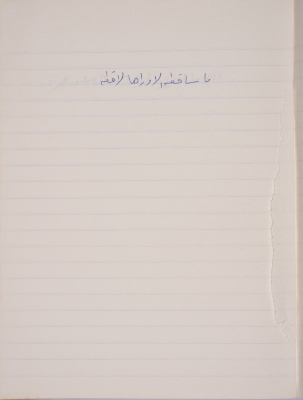 ما ساقطه الا وراها لاقطه